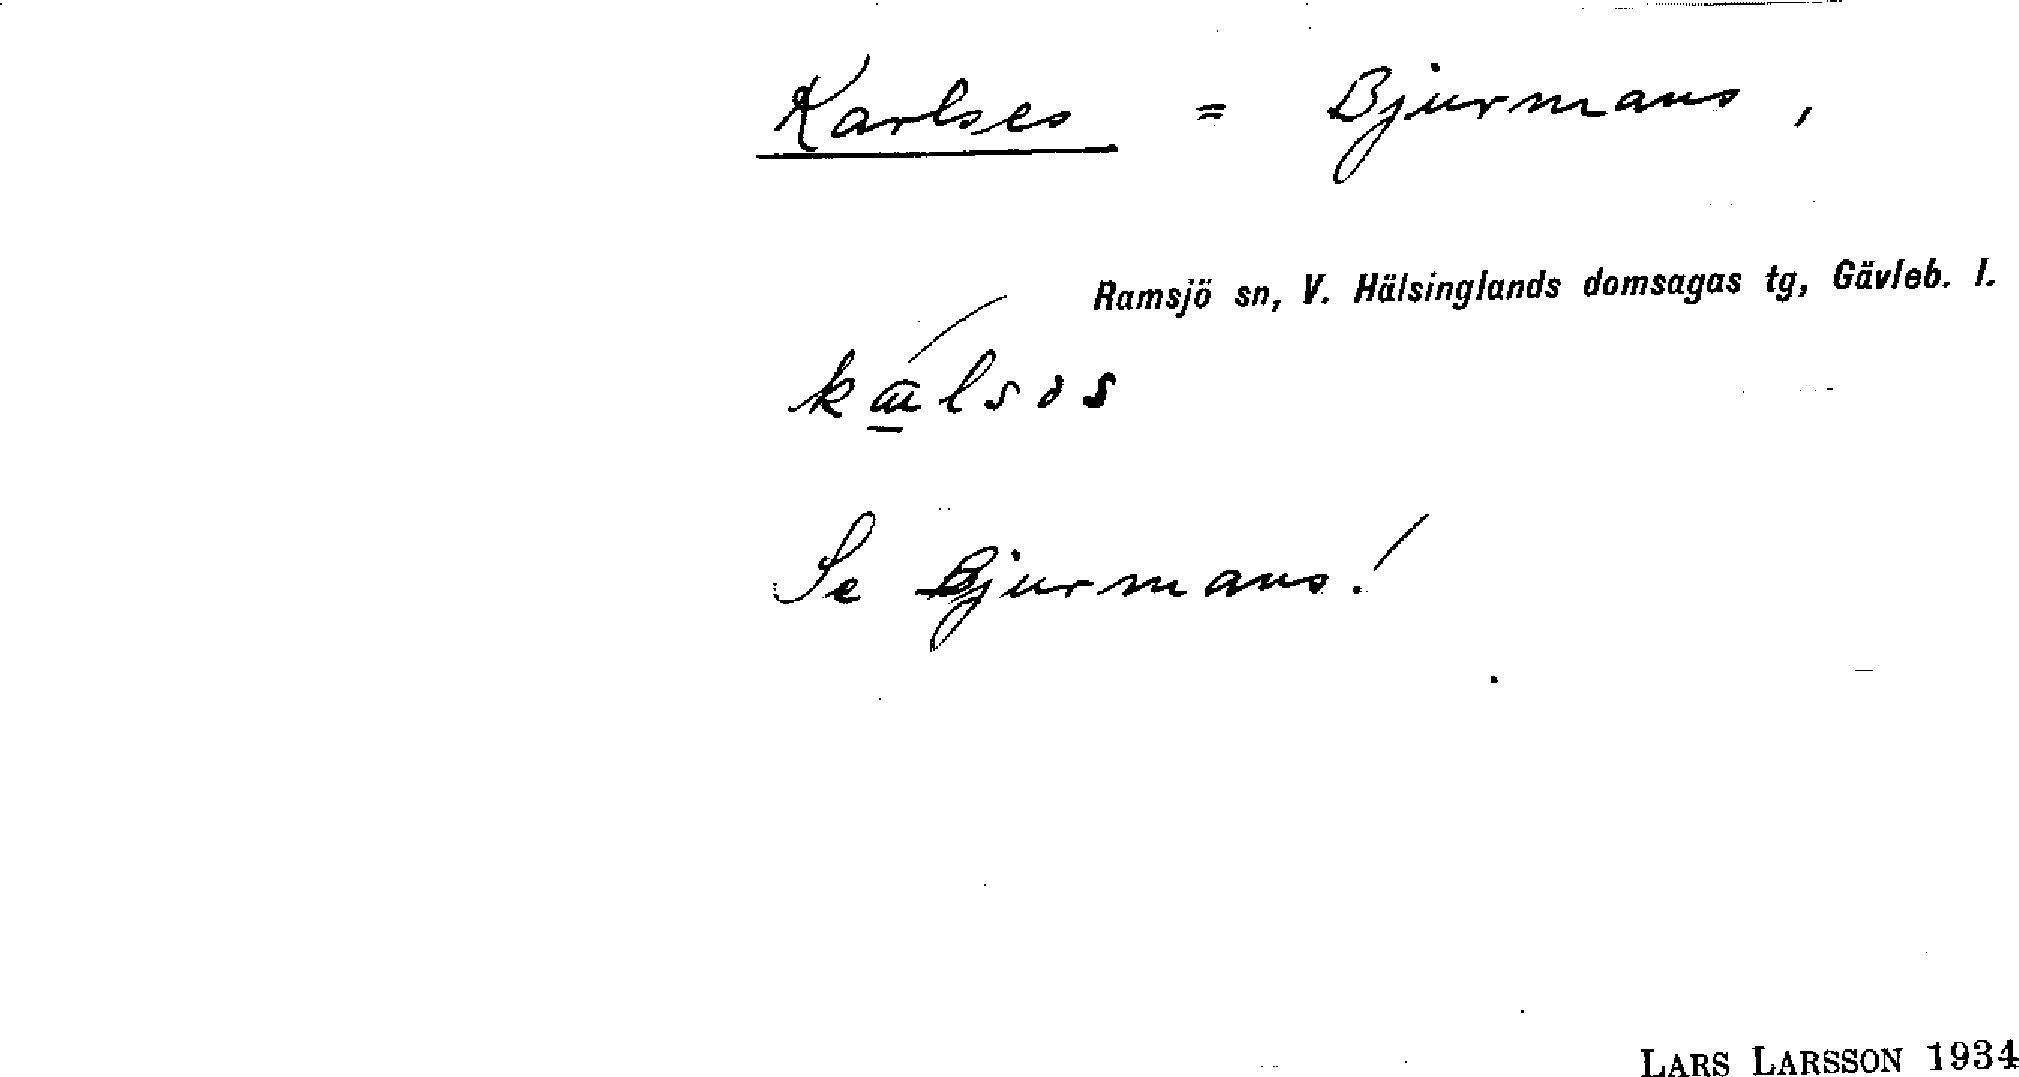 Karlses = Bjurmans,
Ramsjö sn, V. Hälsinglands domsagas tg, Gävleb. l.
Se Bjurmans!
LARS LARSSON 1934